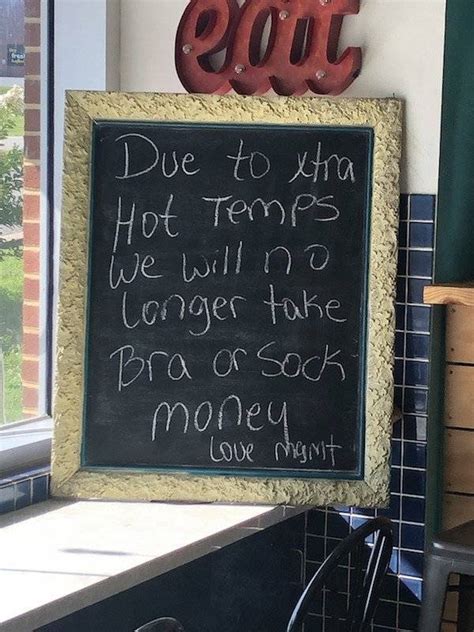 eat
Due to xtra
Hot Temps
We will no
Longer take
Bra or Sock
money
Love mgmt